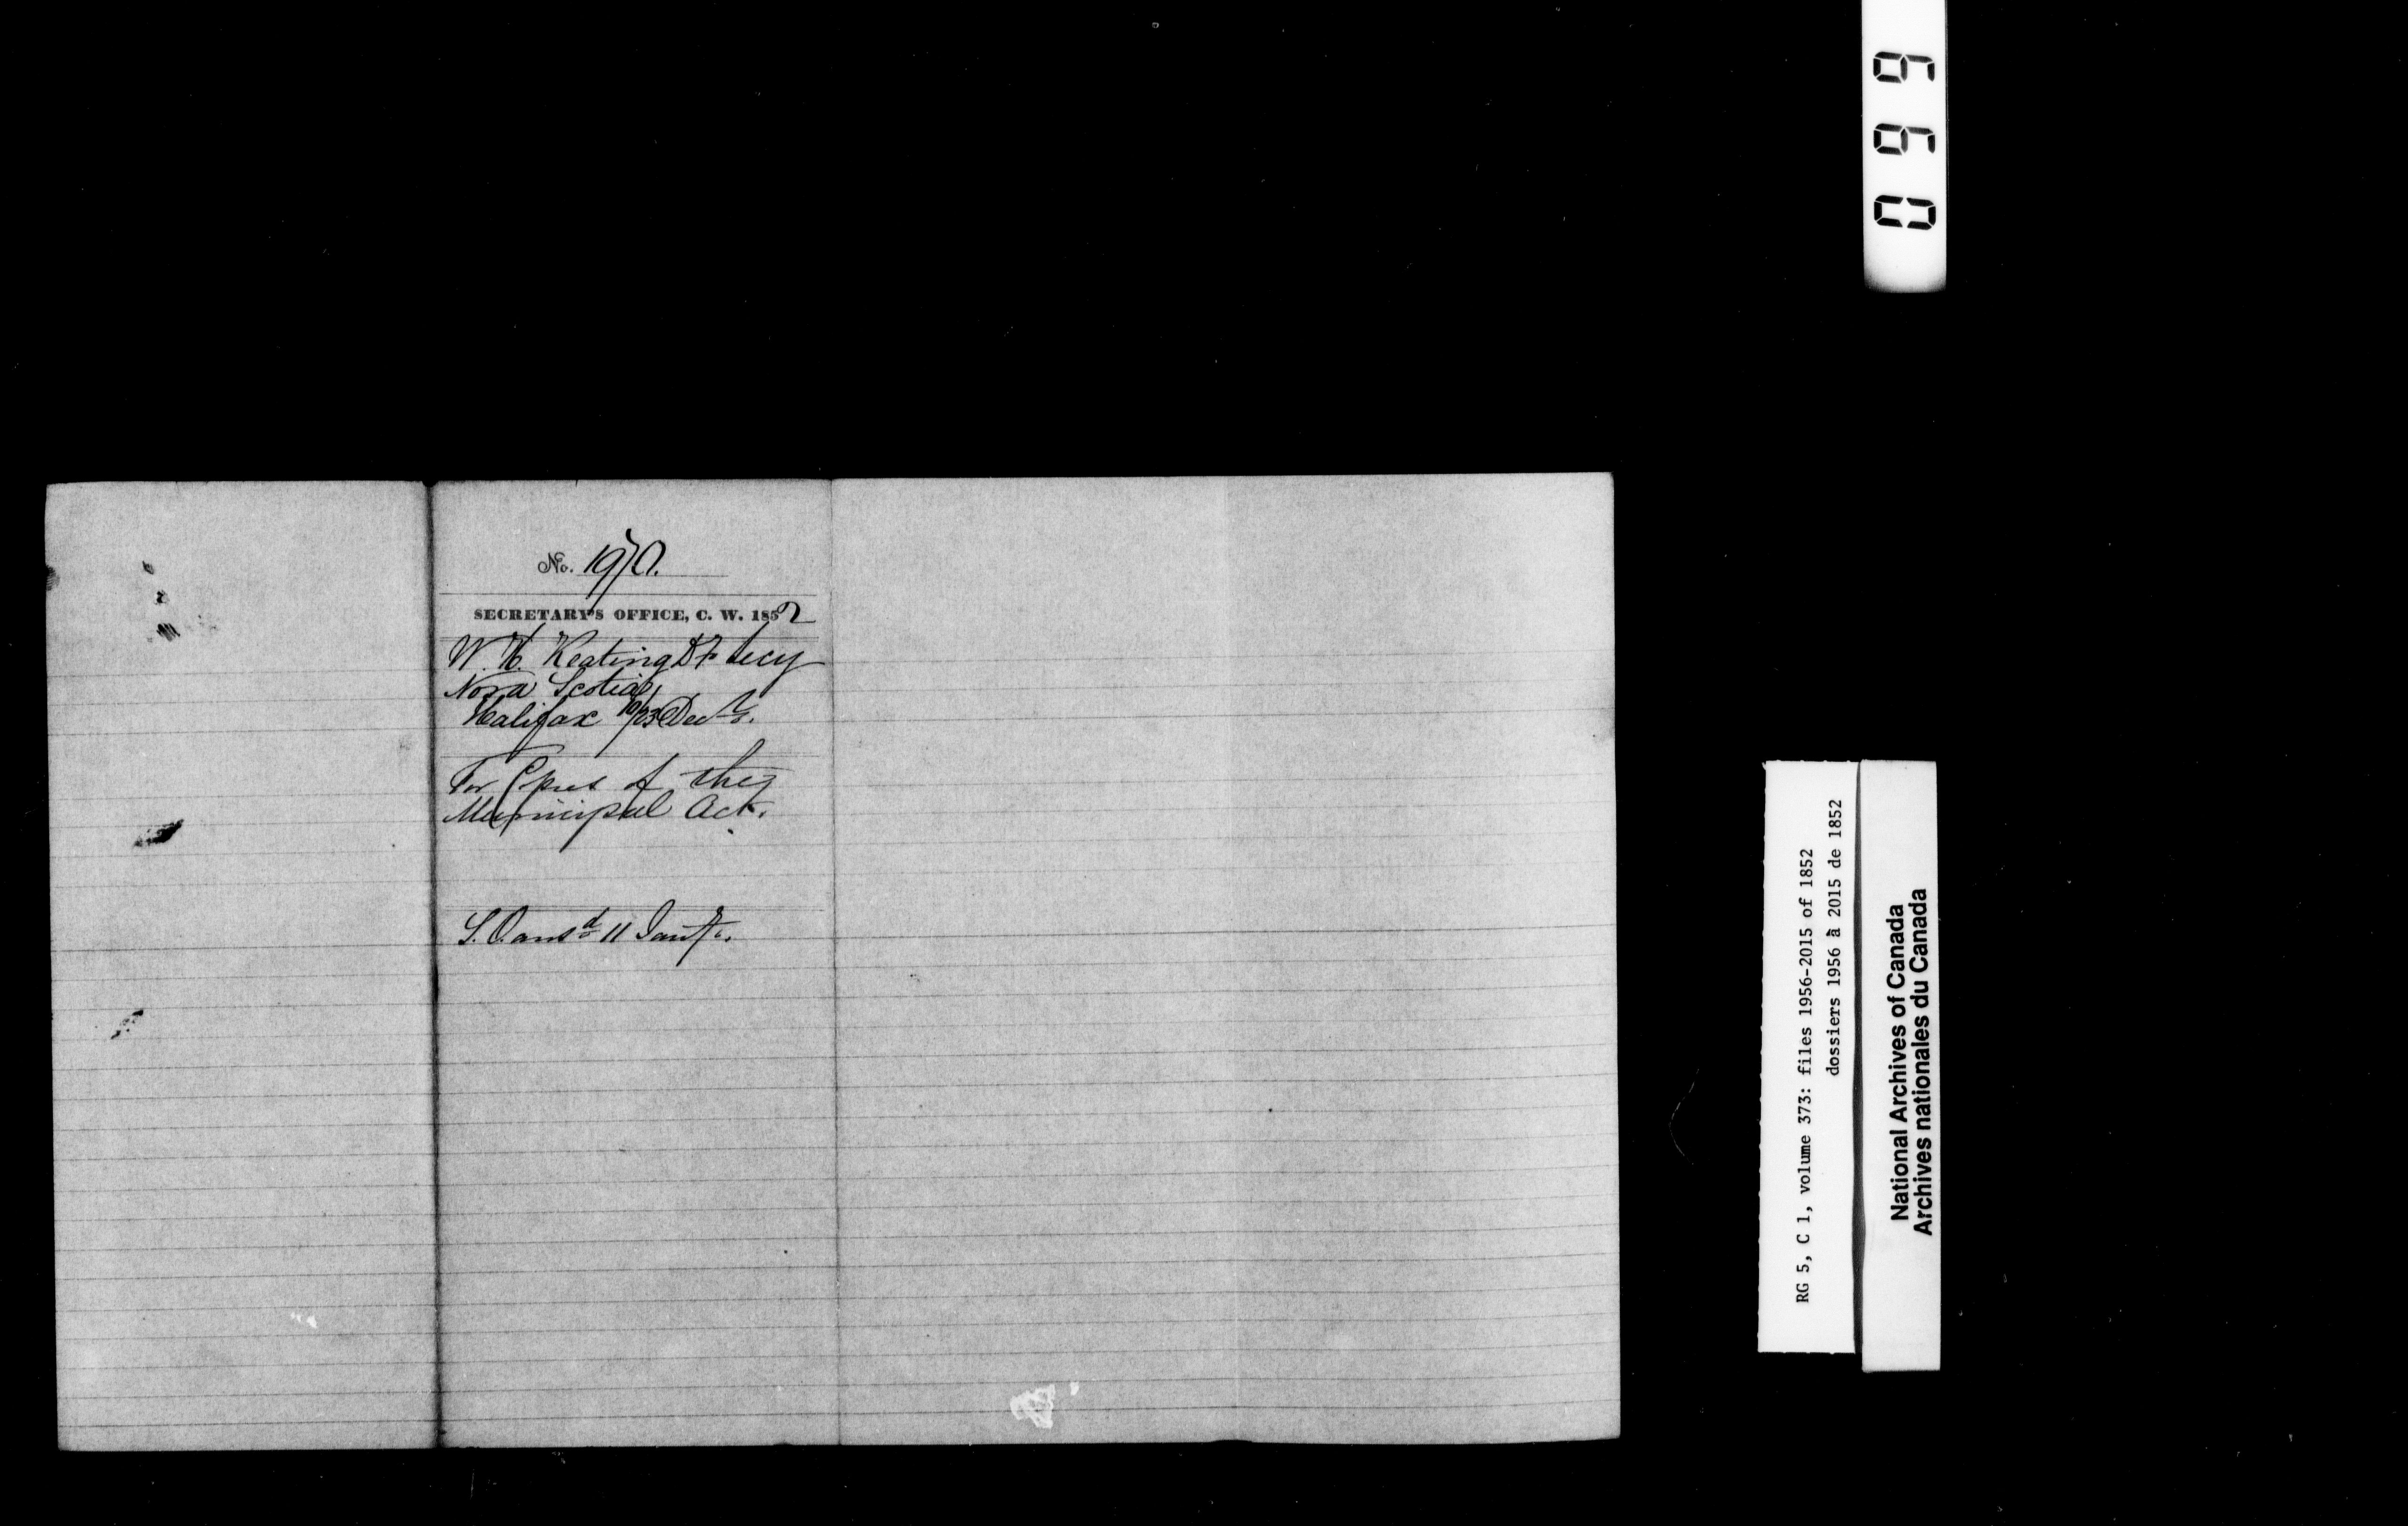 No. 1970.
SECRETARY'S OFFICE, C. W. 1852
W. H. Keating Dy Secy
Nova Scotia
Halifax 10/23 Decr
For Cpies of the
Municipal Act.
L. O. ansd 11 Jany
0 9 9
RG 5, C 1, volume 373: files 1956-2015 of 1852
dossiers 1956 à 2015 de 1852
National Archives of Canada
Archives nationales du Canada